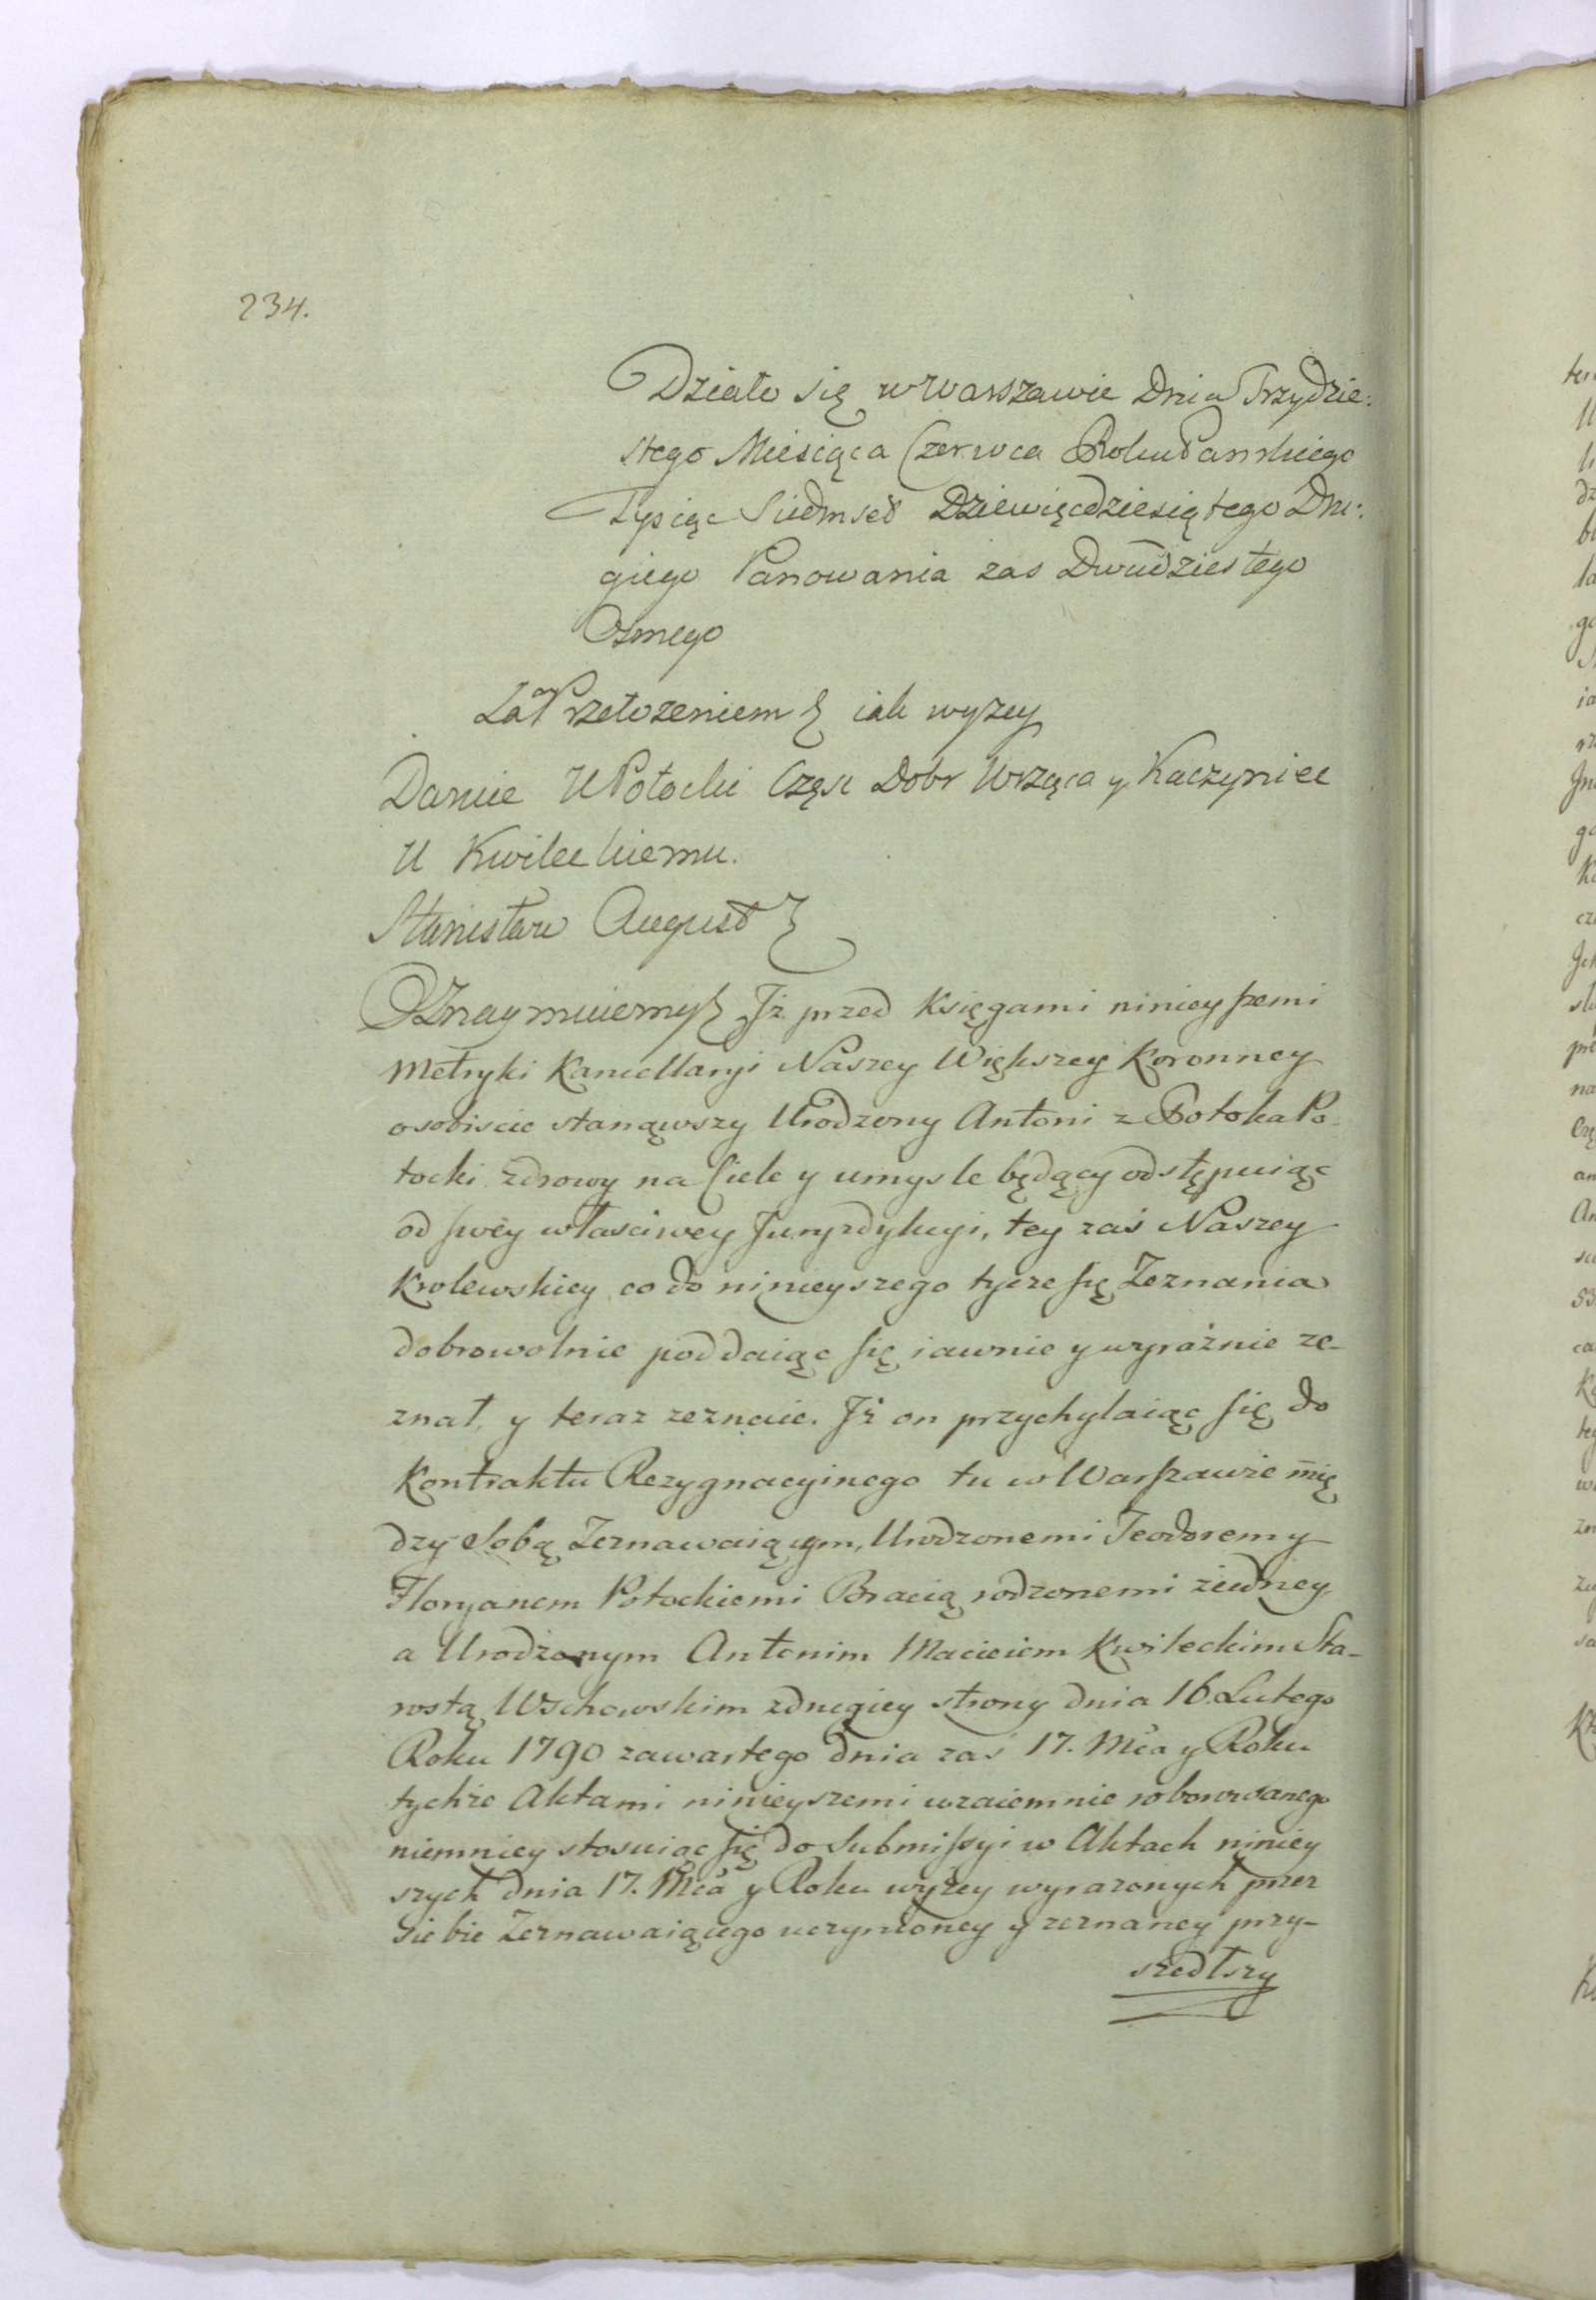 234.
Działo się w Warszawie Dnia Trzydzie:
stego Miesiąca Czerwca Roku Pańskiego
Tysiąc Siedmset Dziewięcdziesiątego Dru:
giego Panowania zas Dwudziestego
Osmego
Za Przełożeniem iak wyzey
Daruie U Potocki Częsc Dobr Wrząca y Kaczyniec
U Kwileckiemu.
Stanisław August
Oznaymuiemy Jż przed Księgami ninieyszemi
Metryki Kancellaryi Naszey Większey Koronney
osobiscie stanąwszy Urodzony Antoni z Potoka Po-
tocki zdrowy na Ciele y umysle będący odstępuiąc
od swey własciwey Juryzdykcyi, tey zaś Naszey
Krolewskiey co do ninieyszego tycze się Zeznania
dobrowolnie poddaiąc się iawnie y wyraźnie ze-
znał y teraz zeznaie. Jż on przychylaiąc się do
Kontraktu Rezygnacyinego tu w Warszawie mię
dzy Sobą Zeznawaiącym, Urodzonemi Teodorem y
Floryanem Potockiemi Bracią rodzonemi ziedney
a Urodzonym Antonim Macieiem Kwileckim Sta-
rostą Wschowskim zdrugiey strony dnia 16. Lutego
Roku 1790 zawartego dnia zaś 17. Mca y Roku
tychże Aktami ninieyszemi wzaiemnie roborowanego
niemniey stosuiąc się do Submissyi w Aktach niniey
szych dnia 17. Mca y Roku wyżey wyrazonych przez
Siebie Zeznawaiącego uczynioney y zeznaney przy-
szedłszy